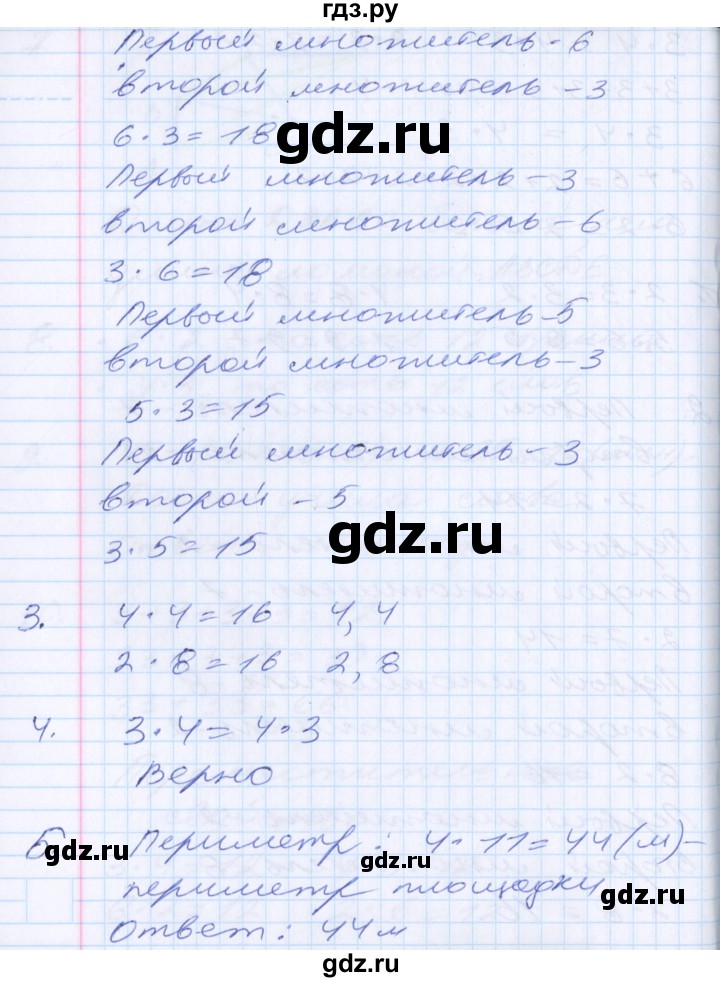 гдз.ру
Первый множитель - 6
второй множитель - 3
6 · 3 = 18
gdz.ru
Первый множитель - 3
второй множитель - 6
3 · 6 = 18
Первый множитель - 5
второй множитель - 3
5 · 3 = 15
Первый множитель - 3
второй - 5
gdz.ru
3 · 5 = 15
3. 4 · 4 = 16 4, 4
2 · 8 = 16 2, 8
4. 3 · 4 = 4 · 3
Верно
Периметр: 4 · 11 = 44 (м) -
gdz.ru
gdz.ru
периметр площадки
gdz.ru
gdz.ru
Ответ: 44 м
gdz.ru